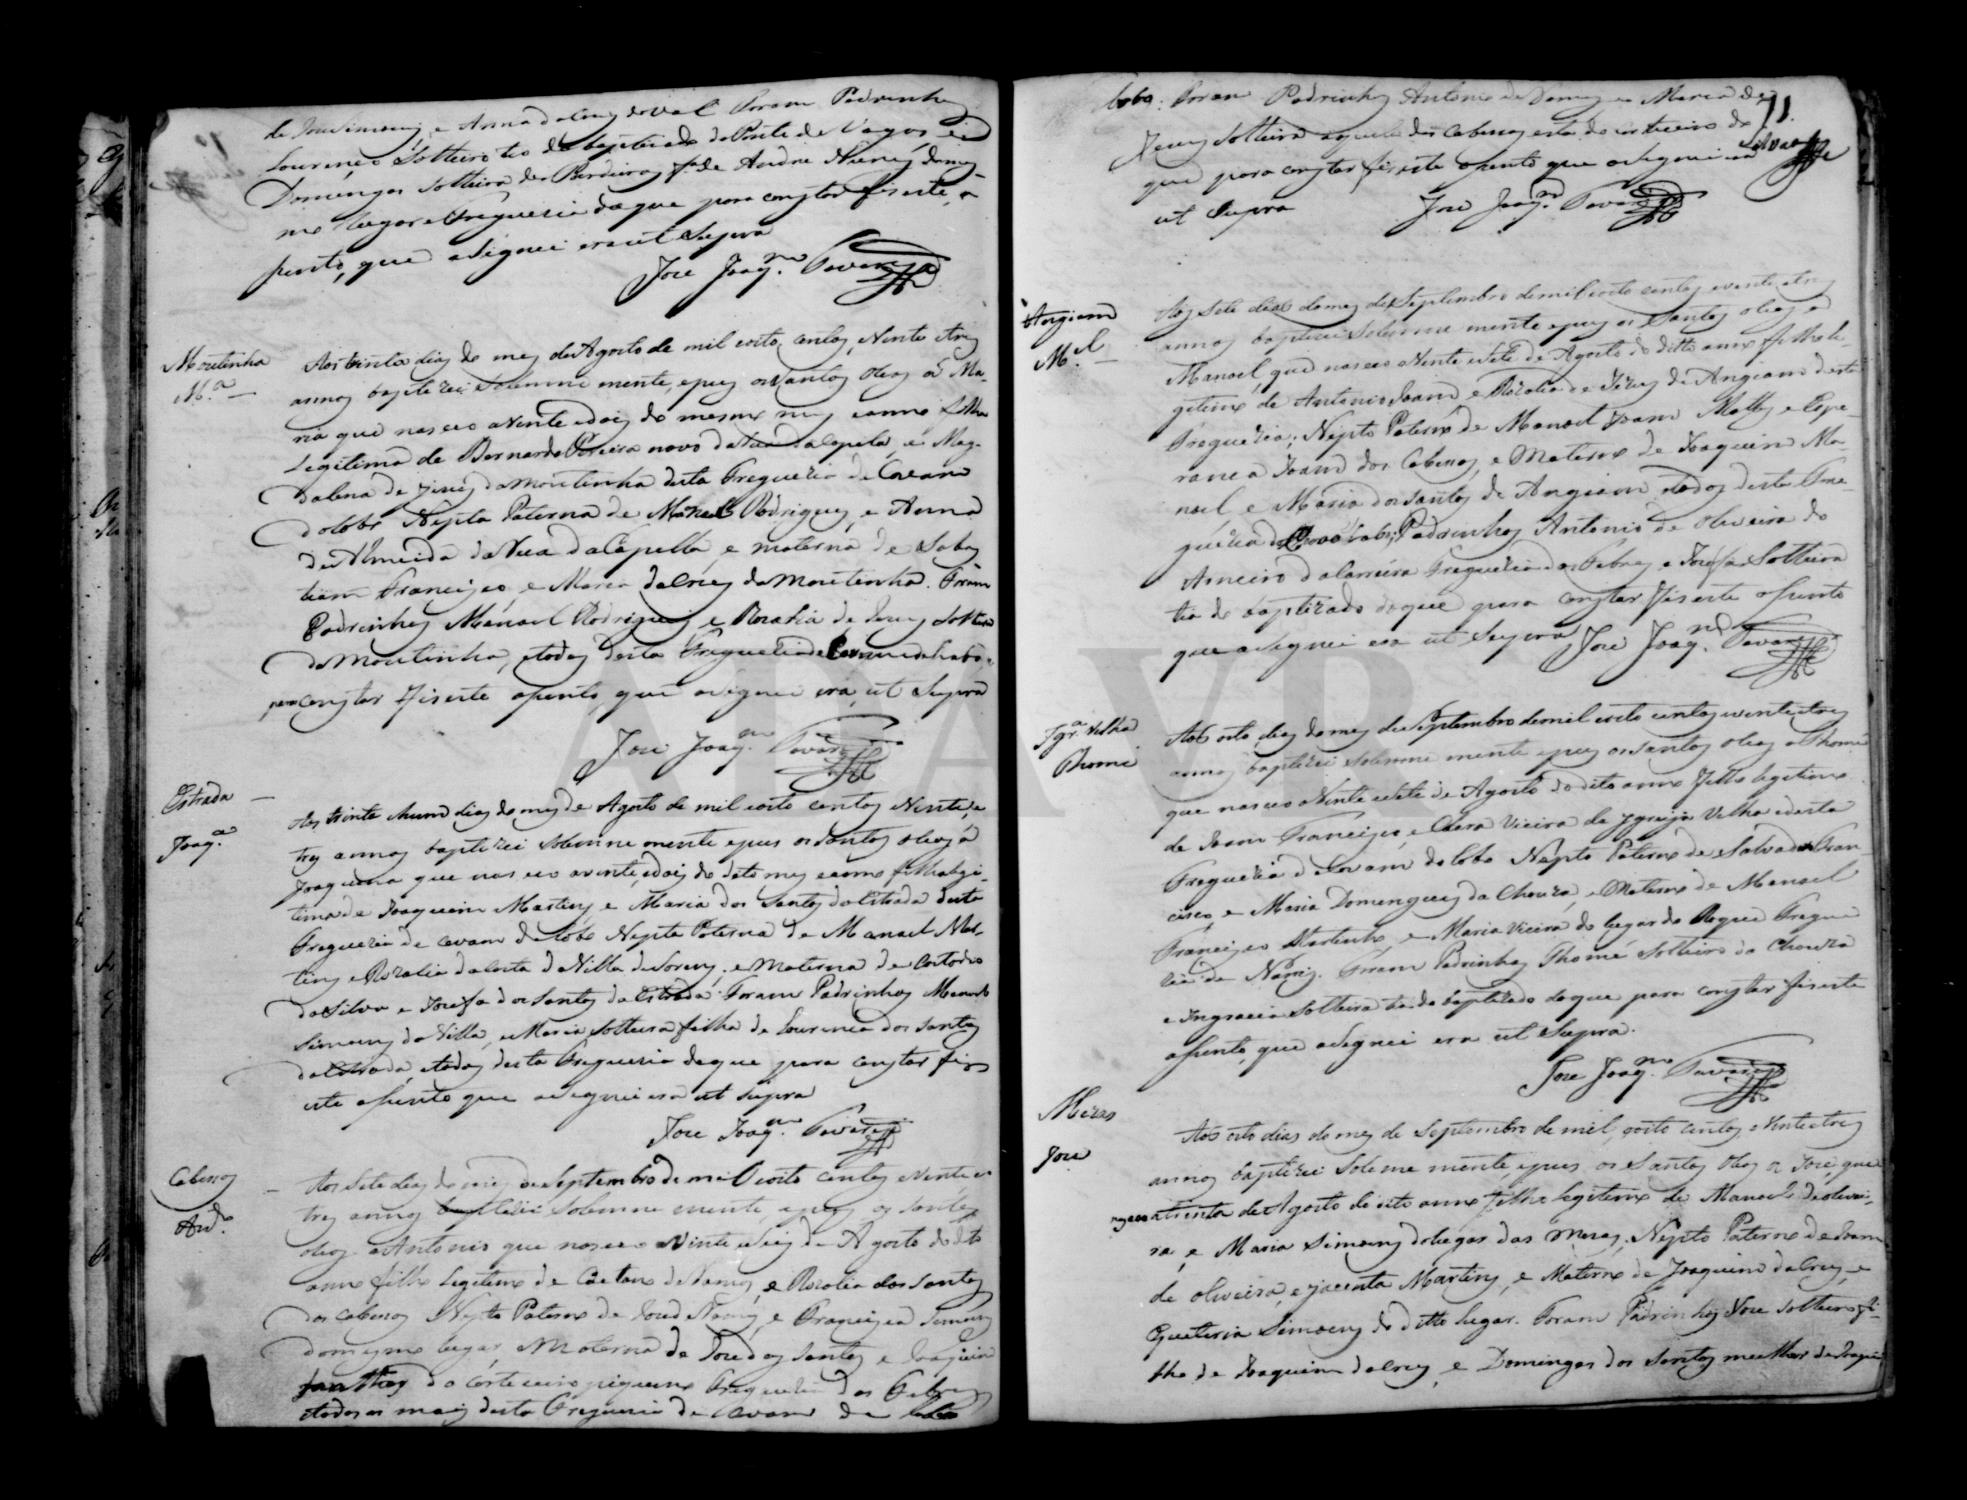 de Jose Simoens, e Anna da Cruz do Val Foram Padrinhos
Lourenço Solteiro tio do baptizado da Ponte de Vagos, e
Domingas solteira das Perdizes fª de Andre Nunes do mes
mo lugar e Freguezia do que para constar fis este, a
sento, que asignei era ut Supra
Jose Joaqm. Tavares
Moutinha
Mª.
Aos trinta dias do mez de Agosto de mil e oito centos, e Vinte e tres
annos baptizei Solemne mente, e puz os Santos Oleos a Ma-
ria que nasceo a Vinte e dois do mesmo mez e anno filha
Legitima de Bernardo Pereira novo da Rua da Capela, e Mag-
dalena de Jesus da Moutinha desta Freguezia de Covam
do lobo Nepta Paterna de Manoel Rodrigues, e Anna
de Almeida da Rua da Capella, e materna de Sabas
tiam Francisco, e Maria da Cruz da Moutinha. Foram
Padrinhos Manoel Rodrigues e Rozalia de Jesus Solteira
da Moutinha, e todos desta Freguezia de Covam do lobo,
para constar fis este asento, que asignei era ut Supra
Jose Joaqm. Tavares
Estrada
Joaqª.
Aos trinta e hum dias do mez de Agosto de mil e oito centos e Vinte, e
tres annos baptizei Solemne mente e puz os Santos Oleos a
Joaquina que nasceo a vinte, e dois do dito mez e anno filha legi-
tima de Joaquim Martins, e Maria dos Santos da Estrada desta
Freguezia de Covam do lobo Nepta Paterna de Manoel Mar-
tins e Rozalia da Costa da Villa de Sorens, e Materna de Costodio
da Silva e Josefa dos Santos da Estrada. Foram Padrinhos Manoel
Simoens da Villa, e Maria Solteira filha de Lourenço dos Santos
da Estrada, e todos desta Freguezia do que para constar fis
este asento que asignei era ut supra
Jose Joaqm. Tavares
Cabesos
Anto.
Aos Sete dias do mez de Septembro de mil e oito centos e Vinte e
tres annos baptizei Solemne mente, e puz os Santos
oleos a Antonio que nasceo a Vinte e seis de Agosto do dito
anno filho Legitimo de Caetano de Nanis, e Rozalia dos Santos
dos Cabesos Nepto Paterno de Jose de Nanis, e Francisca Simoens
do mesmo lugar, Materno de Jose dos Santos e Joaquina
do Corticeiro piqueno Freguezia das Febres
e todos os mais desta Freguezia de Covam do lobo
11.
lobo: Foram Padrinhos Antonio de Domingos e Maria de
Jesus Solteira aquele dos Cabesos esta do corticeiro do
que para constar fis este asento que asignei era
ut Supra
Jose Joaqm. Tavares
Angiam
Mel.
Aos Sete dias do mez de Septembro de mil e oito centos e vinte e tres
annos baptizei Solemne mente e puz os Santos oleos a
Manoel, que nasceo a Vinte e sete de Agosto do ditto anno filho le-
gitimo de Antonio Joam e Rozalia de Jesus de Angiam desta
Freguezia; Nepto Paterno de Manoel Joam Mattos e Espe-
ranca Joam dos Cabesos, e Materno de Joaquim Ma-
noel e Maria dos Santos de Angiam, e todos desta Fre-
guezia de Covam do lobo; Padrinhos Antonio de Oliveira do
Arneiro da Carreira Freguezia das Febres e Josefa Solteira
tia do baptizado do que para constar fis este asento
que asignei era ut Supra Jose Joaqm. Tavares
Igrª. Velha
Thomé
Aos oito dias do mez de Septembro de mil e oito centos e vinte e tres
annos baptizei Solemne mente e puz os santos oleos a Thomé
que nasceo a Vinte e sete de Agosto do dito anno filho legitimo
de Joam Francisco, e Clara Vieira de Igreija Velha e desta
Freguezia de Covam do lobo Nepto Paterno de Salvador Fran-
cisco, e Maria Domingues da Chouza, e Materno de Manoel
Francisco Martinho, e Maria Vieira do lugar da Regue Fregue
zia de Nariz. Foram Padrinhos Thomé Solteiro da Chouza
e Ingracia Solteira tia do baptizado do que para constar fis este
asento, que asignei era ut Supra.
Jose Joaqm. Tavares
Mezas
Joze
Aos oito dias do mez de Septembro de mil, e oito centos e Vinte e tres
annos baptizei Solemne mente, e puz os Santos Oleos a Jose, que
nasceo a trinta de Agosto do dito anno filho legitimo de Manoel de olivei-
ra, e Maria Simoens do lugar das Mezas, Nepto Paterno de Joam
de oliveira, e Jacinta Martins, e Materno de Joaquim da Cruz, e
Quiteria Simoens do ditto lugar. Foram Padrinhos Jose Solteiro fi-
lho de Joaquim da Cruz, e Domingas dos Santos mulher de Joaqim